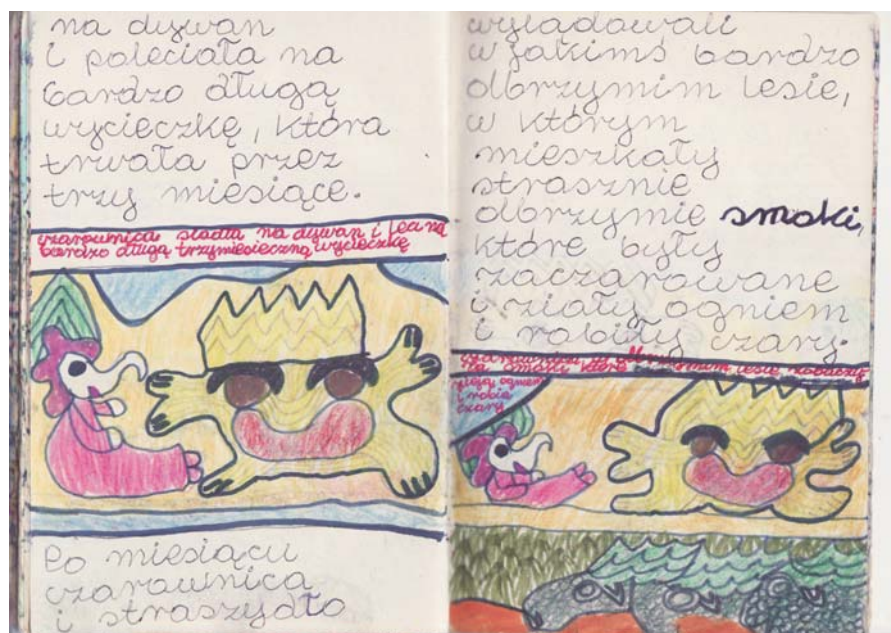 na dywan
i poleciała na
bardzo długą
wycieczkę, która
trwała przez
trzy miesiące.
czarownica siadła na dywan i leci na
bardzo długą trzymiesięczną wycieczkę
Po miesiącu
czarownica
i straszydło
wylądowali
w jakimś bardzo
olbrzymim lesie,
w którym
mieszkały
strasznie
olbrzymie smoki,
które były
zaczarowane
i ziały ogniem
i robiły czary.
czarownica w
smoki które lesie zobaczy
zioją ogniem
i robią
czary